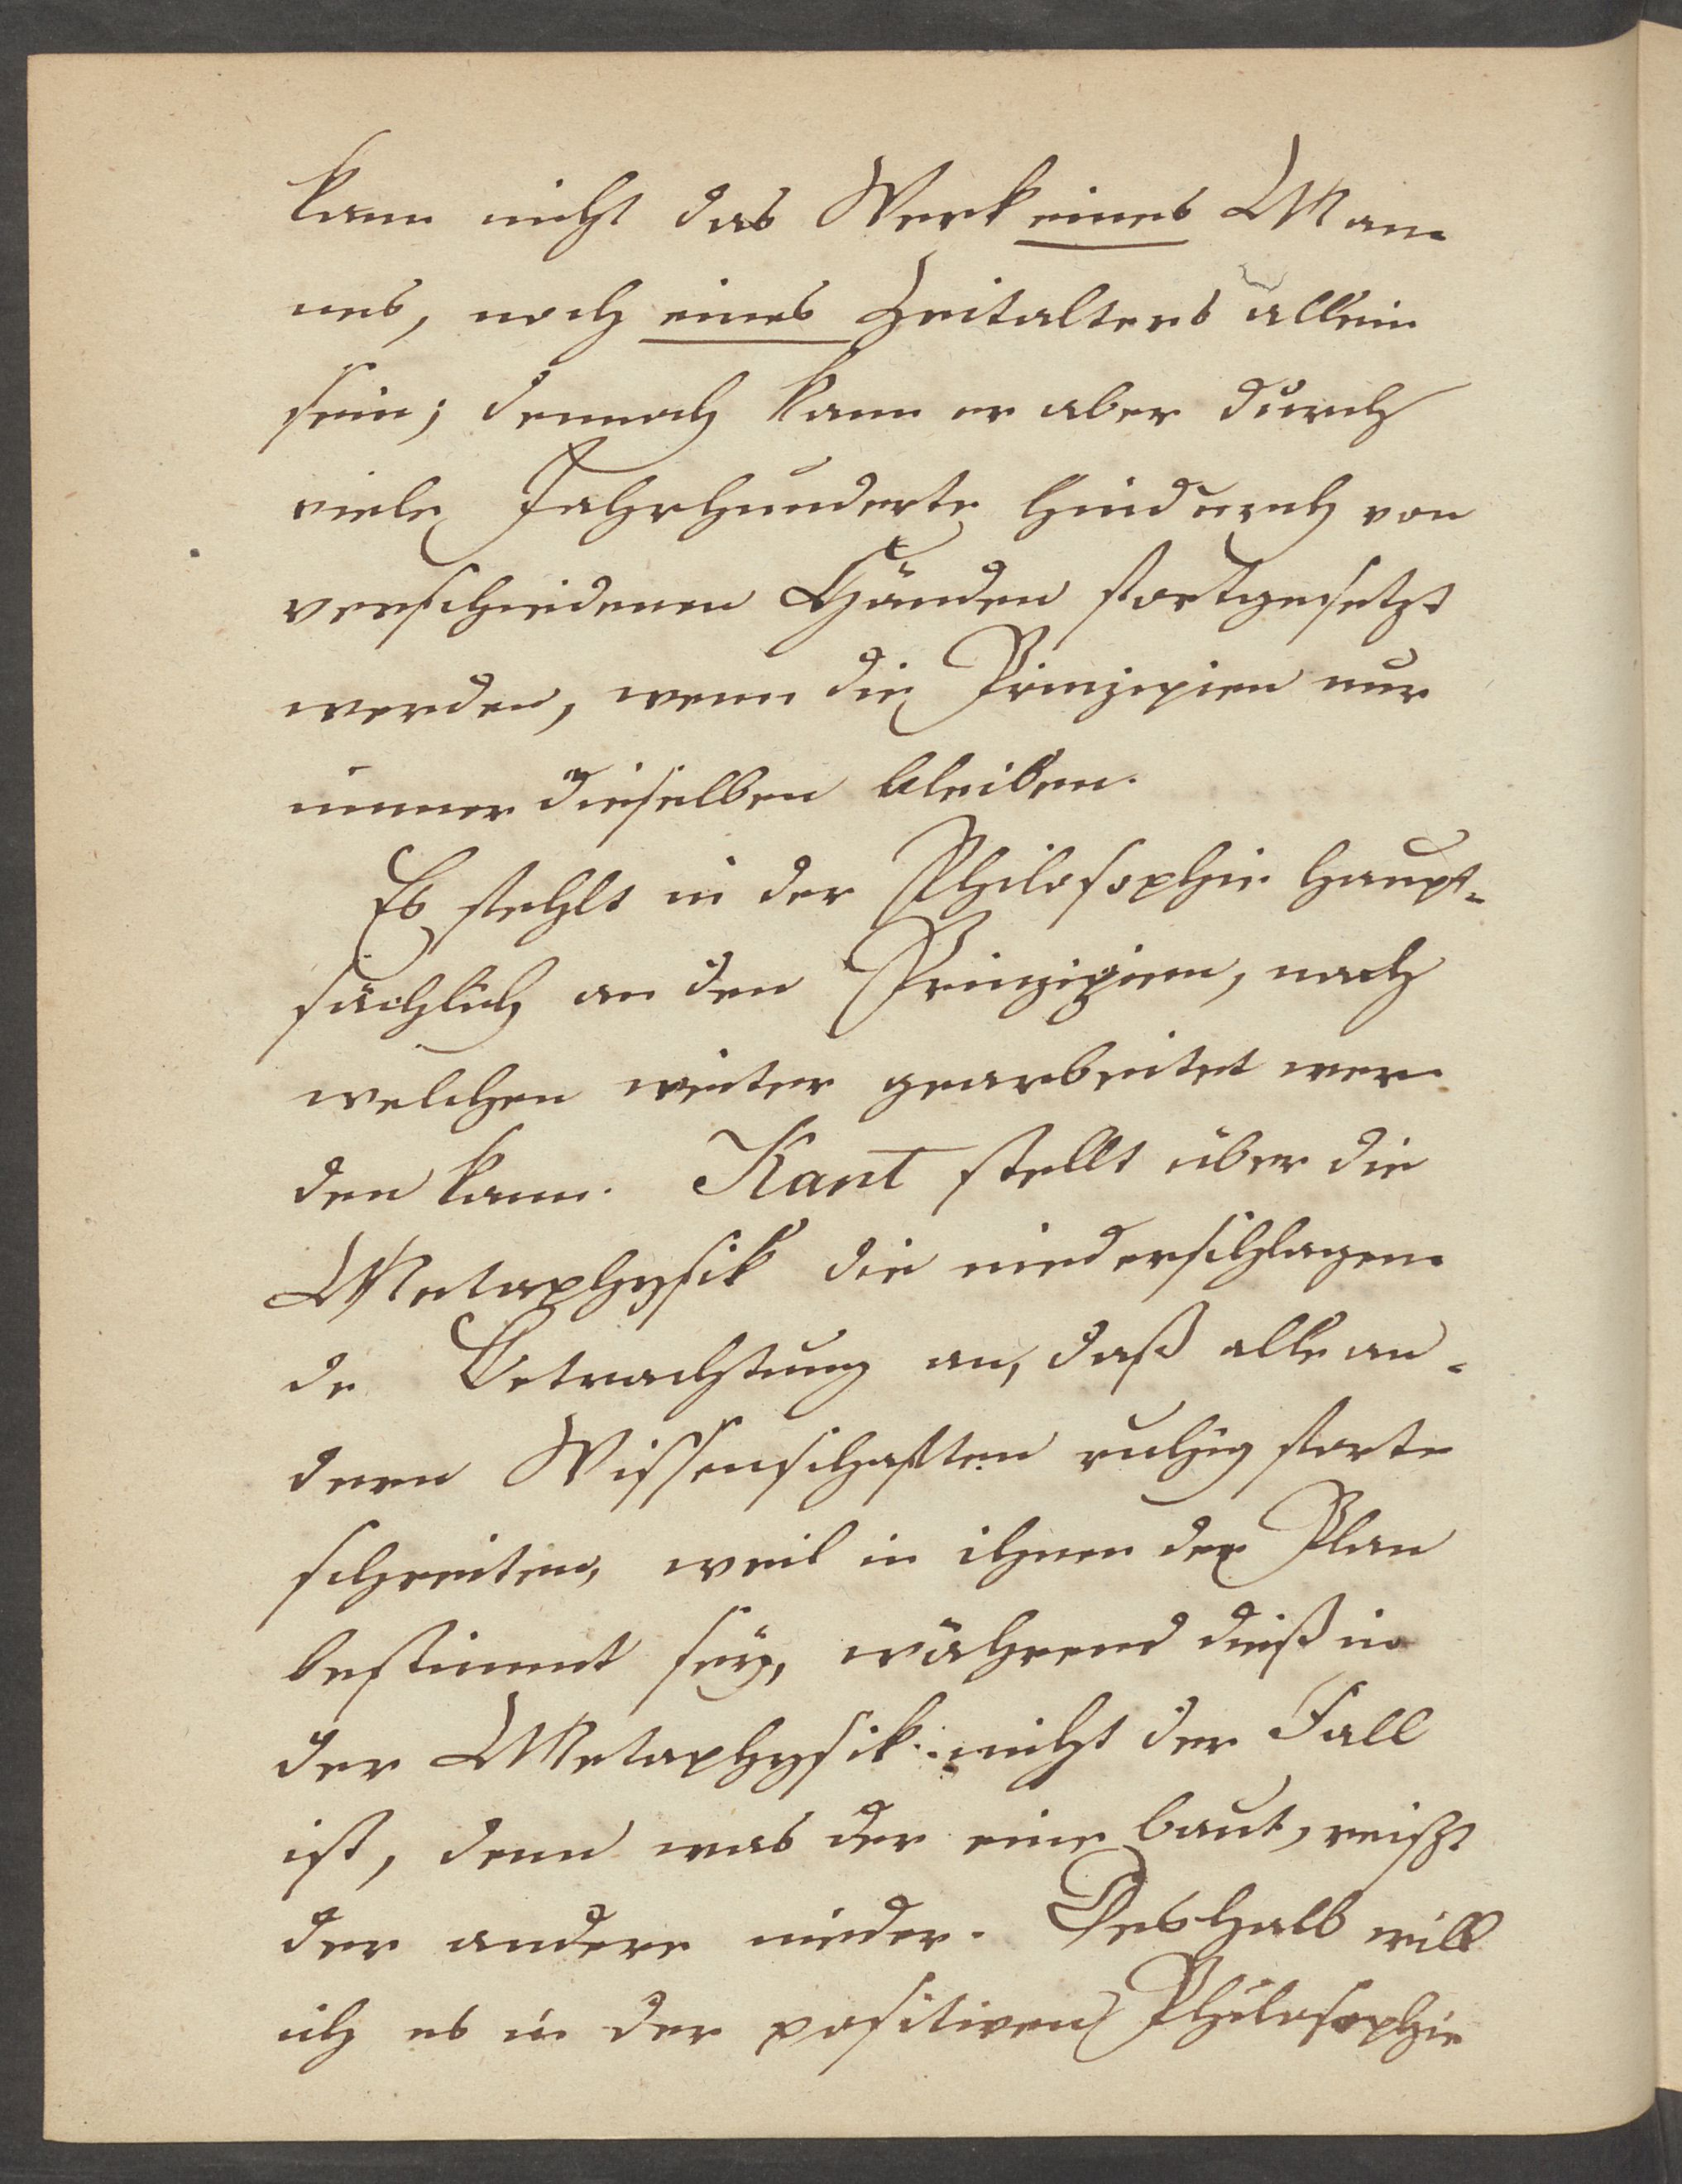 kann nicht das Werk eines Man-
nes, noch eines Zeitalters allein
sein; dennoch kann er aber durch
viele Jahrhunderte hindurch von
verschiedenen Händen fortgesetzt
werden, wenn die Prinzipien nur
immer dieselben bleiben.
Es fehlt in der Philosophie haupt-
sächlich an den Prinzipien, nach
welchen weiter gearbeitet wer-
den kann. Kant stellt über die
Metaphysik die niederschlagen-
de Betrachtung an, daß alle an-
dern Wissenschaften ruhig fort-
schreiten, weil in ihnen der Plan
bestimmt sey, während dieß in
der Metaphysik nicht der Fall
ist, denn was der eine baut, reißt
der andere nieder. Deshalb will
ich es in der positiven Philosophie